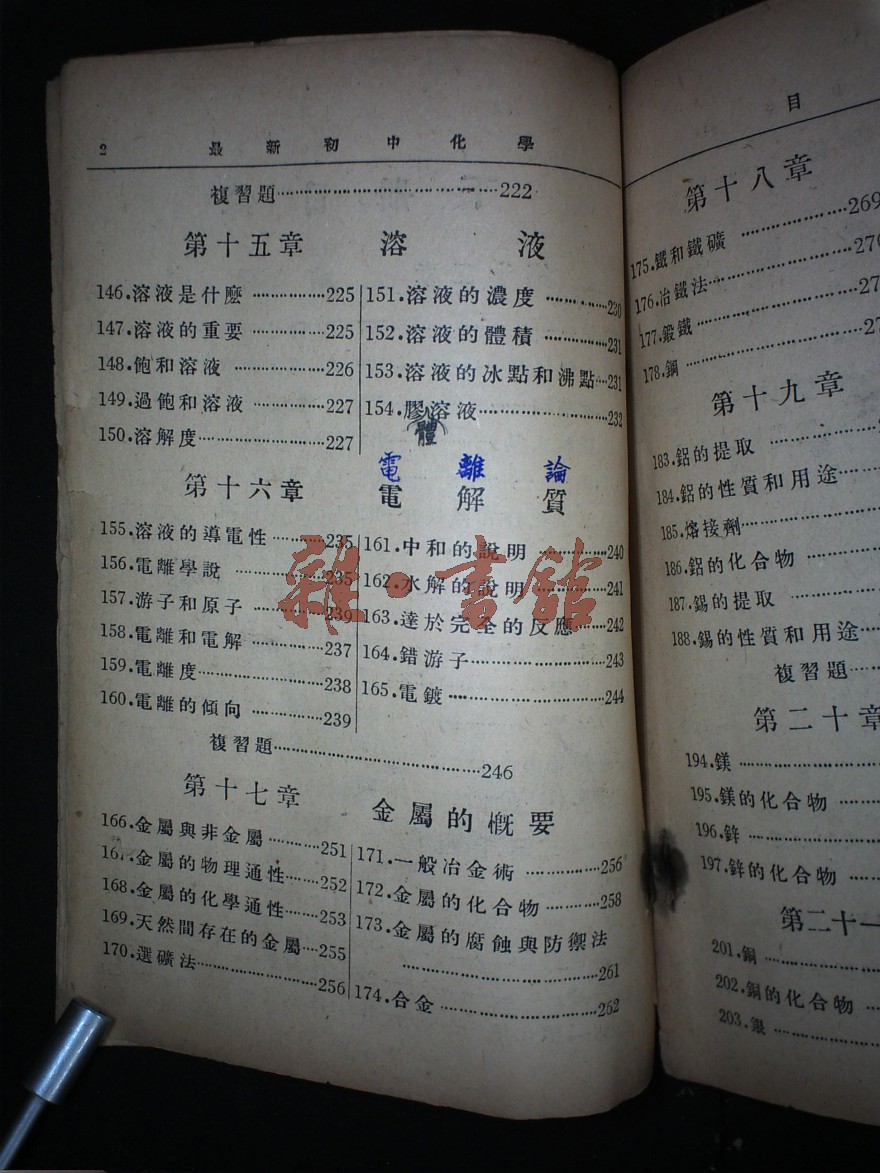 2 最新初中化學
複習題……222
第十五章 溶液
146.溶液是什麽……225
147.溶液的重要……225
148.飽和溶液……226
149.過飽和溶液……227
150.溶解度……227
151.溶液的濃度……230
152.溶液的體積……231
153.溶液的冰點和沸點…231
154.膠溶液……232
體
電離論
第十六章 電解質
155.溶液的導電性……235
156.電離學說……235
157.游子和原子……239
158.電離和電解……237
159.電離度……238
160.電離的傾向……239
161.中和的說明……240
162.水解的說明……241
163.達於完全的反應……242
164.錯游子……243
165.電鍍……244
複習題……246
第十七章 金屬的概要
166.金屬與非金屬……251
167.金屬的物理通性……252
168.金屬的化學通性……253
169.天然間存在的金屬…255
170.選礦法……256
171.一般冶金術……256
172.金屬的化合物……258
173.金屬的腐蝕與防禦法
……261
174.合金……262
雜·書館
目
第十八章
175.鐵和鐵礦……269
176.冶鐵法……
177.鍛鐵……
178.鋼……
第十九章
183.鋁的提取……
184.鋁的性質和用途……
185.熔接劑……
186.鋁的化合物……
187.錫的提取……
188.錫的性質和用途……
複習題……
第二十章
194.鎂……
195.鎂的化合物……
196.鋅……
197.鋅的化合物……
第二十一
201.銅……
202.銅的化合物……
203.銀……